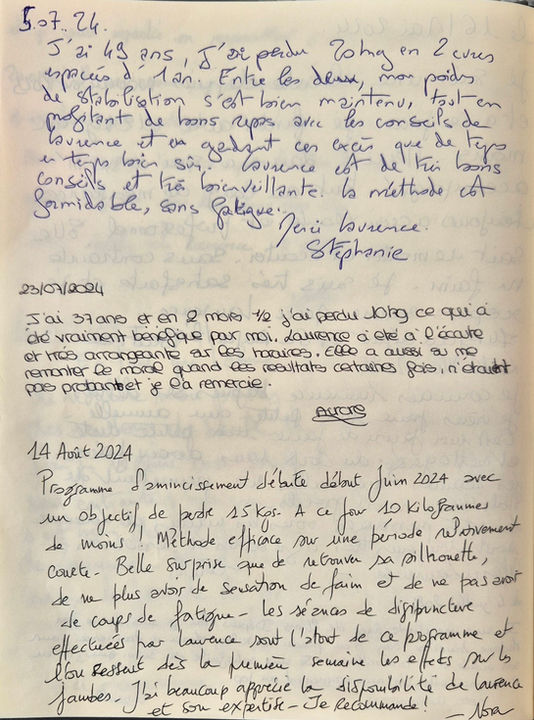 5.07.24.
J'ai 49 ans, J'ai perdu 20kg en 2 cures
espacées d'1 an. Entre les deux, mon poids
de stabilisation s'est bien maintenu, tout en
profitant de bons repas avec les conseils de
Laurence et en gardant ces excès que de temps
en temps bien sûr. Laurence est de très bons
conseils et très bienveillante. la méthode est
formidable, sans fatigue.
Merci Laurence.
Stéphanie
23/07/2024
J'ai 37 ans et en 2 mois 1/2 j'ai perdu 10kg ce qui a
été vraiment bénéfique par moi. Laurence a été à l'écoute
et très arrangeante sur les horaires. Elle a aussi su me
remonter le moral quand les résultats certaines fois, n'étaient
pas probant et je la remercie.
Aurore
14 Août 2024
Programme d'amincissement débuté début Juin 2024 avec
un objectif de perdre 15 Kgs. A ce jour 10 Kilogrammes
de moins ! Méthode efficace sur une période relativement
courte - Belle surprise que de retrouver sa silhouette,
de ne plus avoir de sensation de faim et de ne pas avoir
de coups de fatigue - les séances de digipuncture
effectuées par Laurence sont l'atout de ce programme et
l'on ressent dès la premier semaine les effets sur les
jambes. J'ai beaucoup apprécié la disponibilité de Laurence
et son expertise - Je recommande !